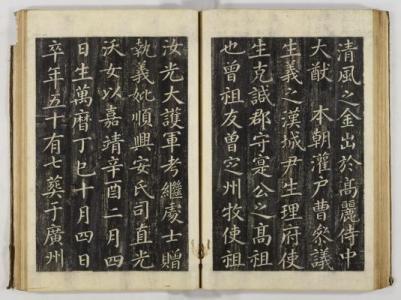 清風之金出於髙麗侍中
大猷 本朝灌戶曹叅議
生義之漢城尹生理府使
生克諴郡守寔公之髙祖
也曾祖友曾㝎州牧使祖
汝光大護軍考繼處士贈
執義妣順興安氏司直光
沃女以嘉靖辛酉二月四
日生萬曆丁巳十月四日
卒年五十有七葬于廣州